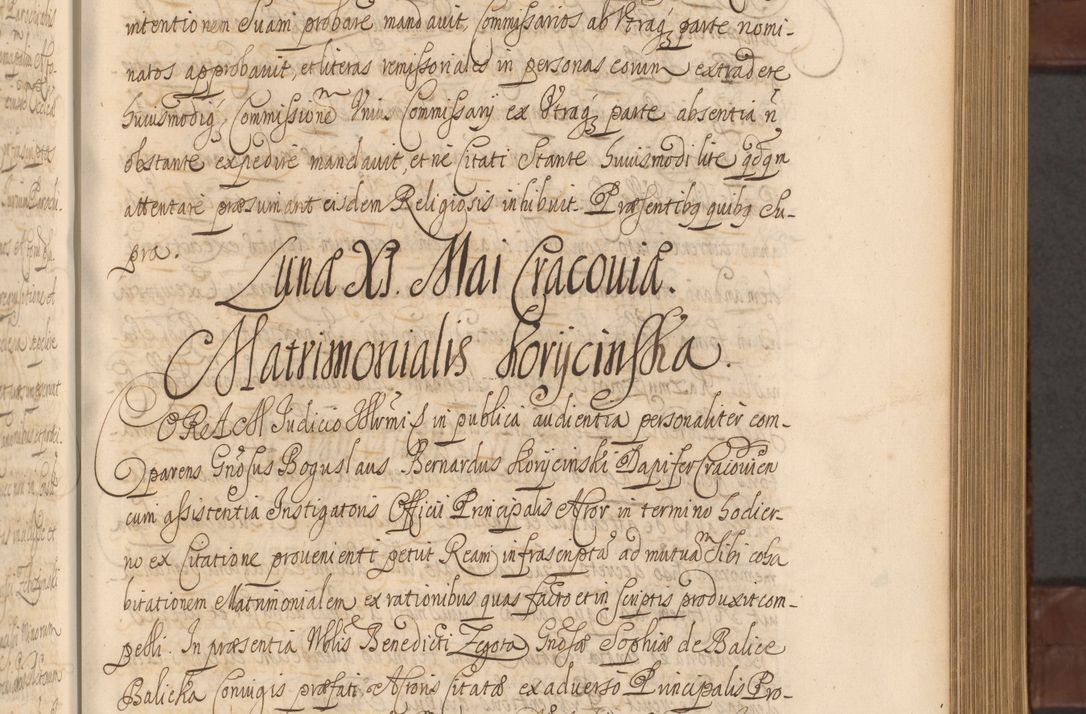 intentionem Suam probare mandavit, Commissarios ab Utraq́ʒ parte nomi-
natos approbavit, et literas remissoriales in personas eorum extradere
huiusmodiq́ʒ Commissionē Unius Commissarij ex Utraq́ʒ parte absentia ñ
obstante expedire mandavit, et ne Citati Stante huiusmodi lite qdqn
attentare præsumant eisdem Religiosis inhibuit. Præsentibq quibq Su-
pra.
Luna XI. Mai Cracoviæ.
Matrimonialis Korijcinska.
CORAM Judicio Illrmi S in publica audientia personaliter com-
parens Gnōsus Boguslaus Bernardus Korijcinski Dapifer Cracovien
cum assistentia Instigatoris Officii Principalis Actor in termino hodier-
no ex Citatione provenienti petiit Ream infrascriptā ad mutuam Sibi coha
bitationem Matrimonialem ex rationibus quas facto et in Scriptis produxit com-
pelli. In præsentia Nblis Benedicti Zegota Gnōsæ Sophiæ de Balice
Balicka Coniugis præfati Actoris Citatæ ex adverso Principalis Pro-